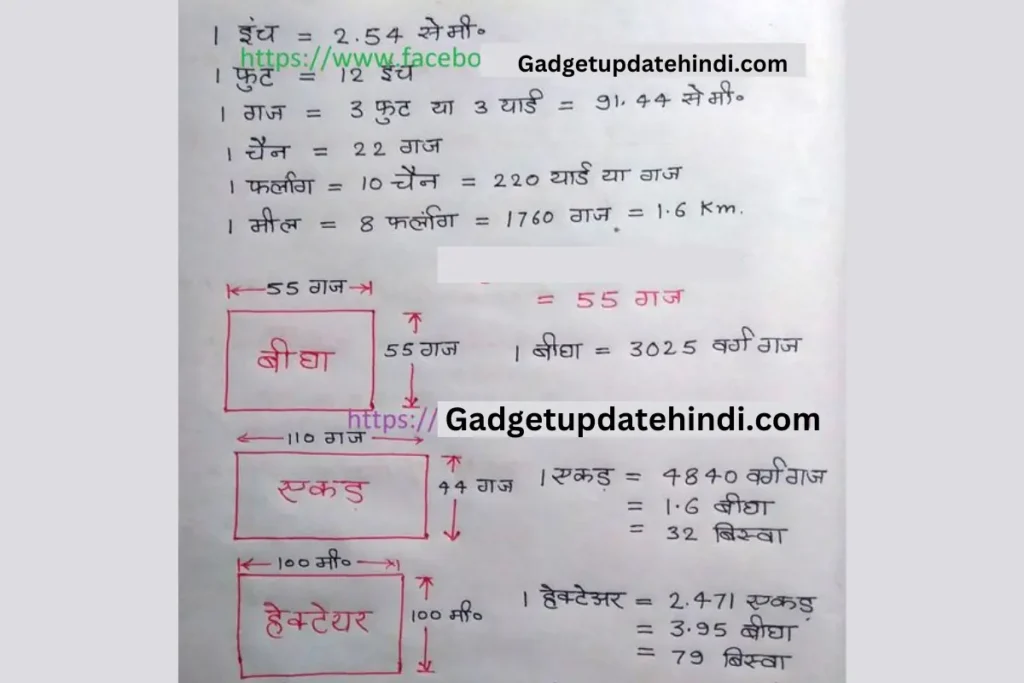 1 इंच = 2.54 सेमी॰
https://www.facebo
Gadgetupdatehindi.com
1 फुट = 12 इंच
1 गज = 3 फुट या 3 यार्ड = 91.44 सेमी॰
1 चैन = 22 गज
1 फर्लांग = 10 चैन = 220 यार्ड या गज
1 मील = 8 फर्लांग = 1760 गज = 1.6 Km.
55 गज
= 55 गज
बीघा
55 गज
1 बीघा = 3025 वर्ग गज
https://
Gadgetupdatehindi.com
110 गज
एकड़
44 गज
1 एकड़ = 4840 वर्ग गज
= 1.6 बीघा
= 32 बिस्वा
100 मी॰
हेक्टेयर
100 मी॰
1 हेक्टेअर = 2.471 एकड़
= 3.95 बीघा
= 79 बिस्वा